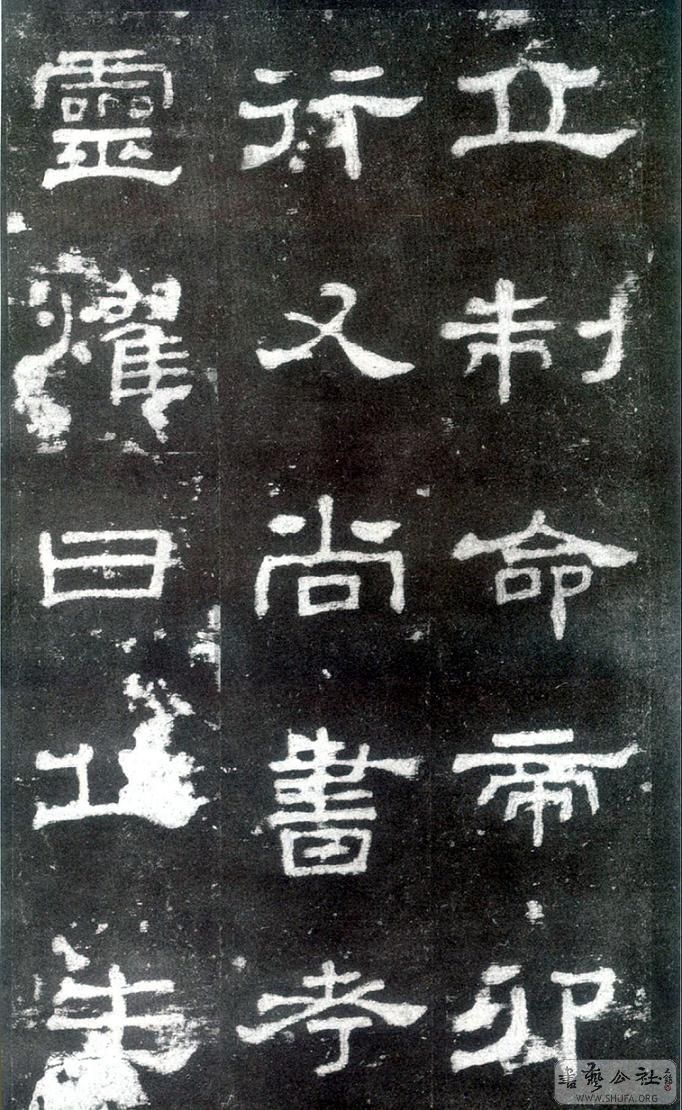 丘制命帝卯
行又尚書考
靈燿曰丘生
書藝公社
WWW.SHUFA.ORG